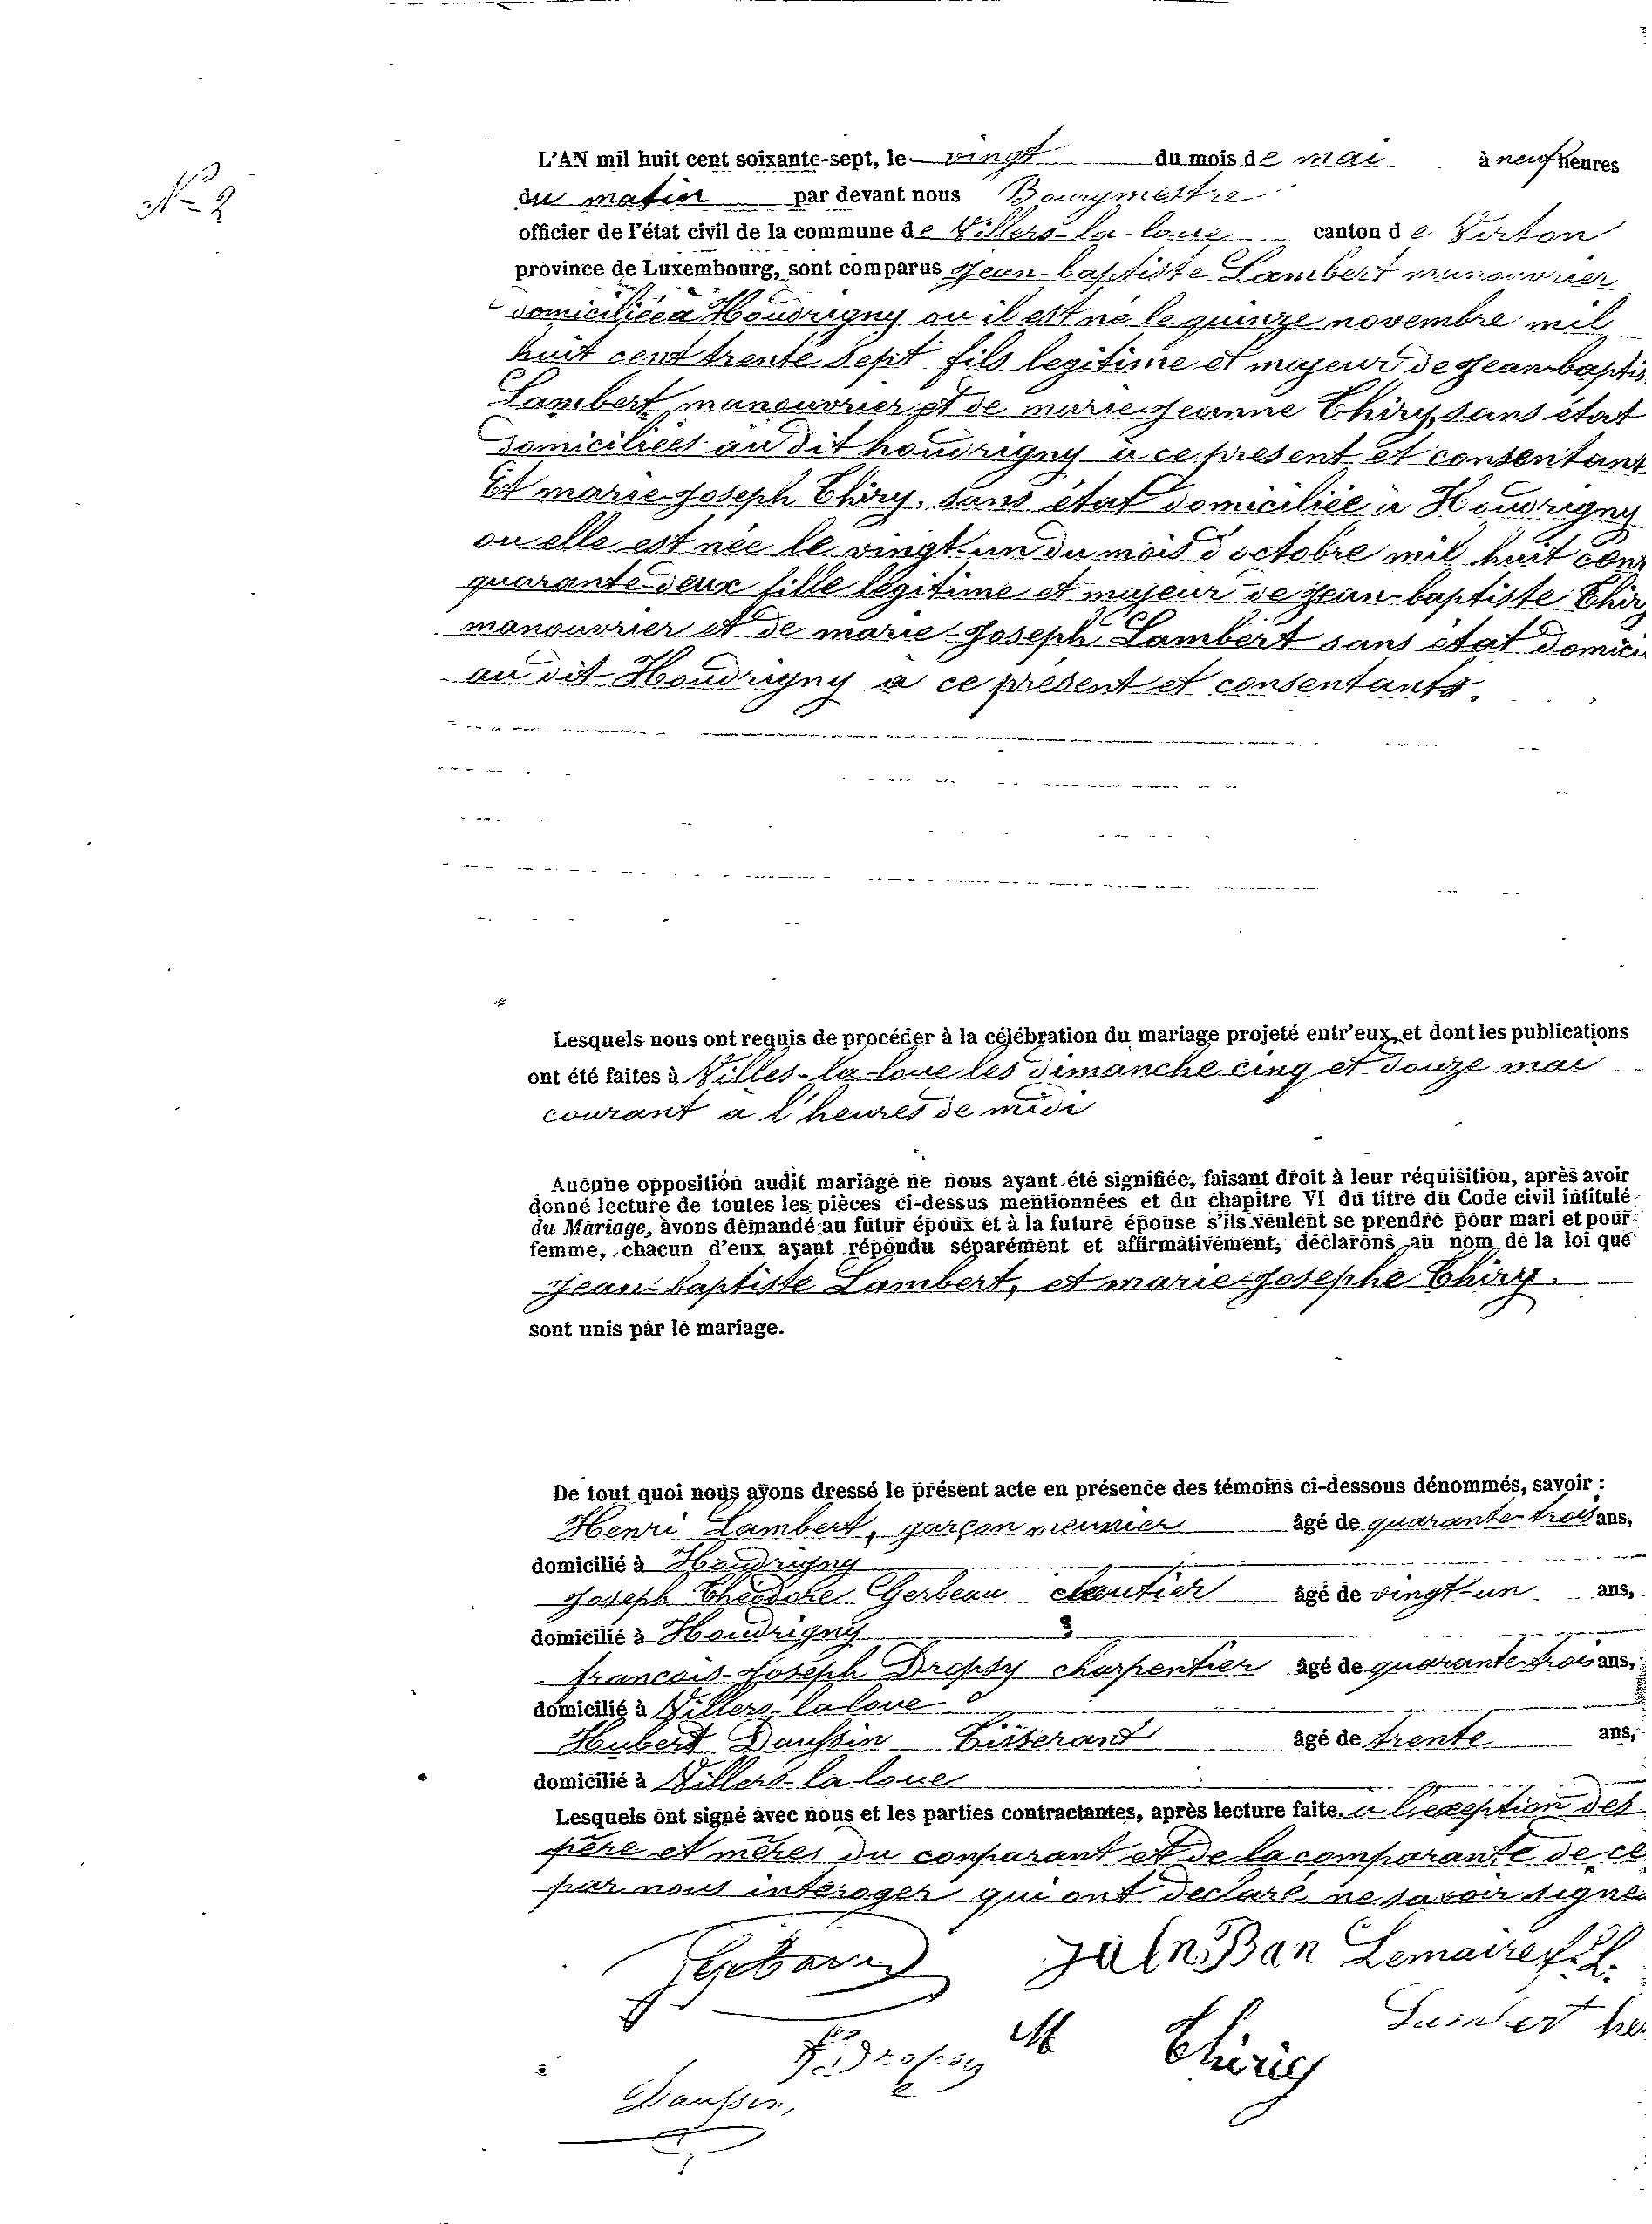 N° 2
L'AN mil huit cent soixante-sept, le vingt du mois de mai à neuf heures
du matin par devant nous Bourgmestre
officier de l'état civil de la commune de Villers-la-loue canton de Virton
province de Luxembourg, sont comparus Jean-baptiste Lambert manouvrier
domiciliée à Houdrigny ou il est né le quinze novembre mil
huit cent trente sept fils legitime et majeur de Jean-baptis
Lambert, manouvrier et de marie-Jeanne Thiry, sans état
domiciliées au dit houdrigny à ce present et consentant
Et marie-Joseph Thiry, sans état domiciliée à Houdrigny
ou elle est née le vingt-un du mois d'octobre mil huit cent
quarante-deux fille légitime et majeur de Jean-baptiste Thiry
manouvrier et de marie-Joseph Lambert sans état domici
au dit Houdrigny à ce présent et consentants.
Lesquels nous ont requis de procéder à la célébration du mariage projeté entr'eux, et dont les publications
ont été faites à Villes-la-loue les dimanche cinq et douze mai
courant à l'heures de midi
Aucune opposition audit mariage ne nous ayant été signifiée, faisant droit à leur réquisition, après avoir
donné lecture de toutes les pièces ci-dessus mentionnées et du chapitre VI du titre du Code civil intitulé
du Mariage, avons demandé au futur époux et à la future épouse s'ils veulent se prendre pour mari et pour
femme, chacun d'eux ayant répondu séparément et affirmativement, déclarons au nom de la loi que
Jean-baptiste Lambert, et marie-Josephe Thiry.
sont unis par le mariage.
De tout quoi nous avons dressé le présent acte en présence des témoins ci-dessous dénommés, savoir :
Henri Lambert, garçon meunier âgé de quarante-trois ans,
domicilié à Houdrigny
Joseph Théodore Gerbeau cloutier âgé de vingt-un ans,
domicilié à Houdrigny
francois-Joseph Dropsy charpentier âgé de quarante-trois ans,
domicilié à Villers-la loue
Hubert Daussin Tisserant âgé de trente ans,
domicilié à Villers-la loue
Lesquels ont signé avec nous et les parties contractantes, après lecture faite, à l'exeption des
père et mères du conparant et de la comparante de ce
par nous interoger qui ont déclaré ne savoir signe
Lemaire
M Thiry
Lambert he
Dropsy
Daussin,